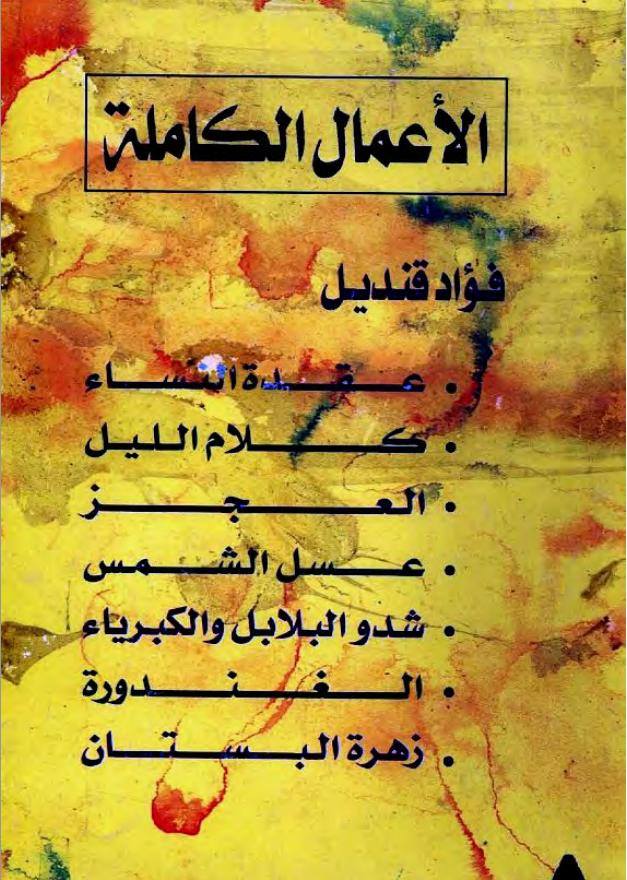 الأعمال الكاملة
فؤاد قنديل
• عقدة النساء
• كلام الليل
• العجز
• عسل الشمس
• شدو البلابل والكبرياء
• الغندورة
• زهرة البستان